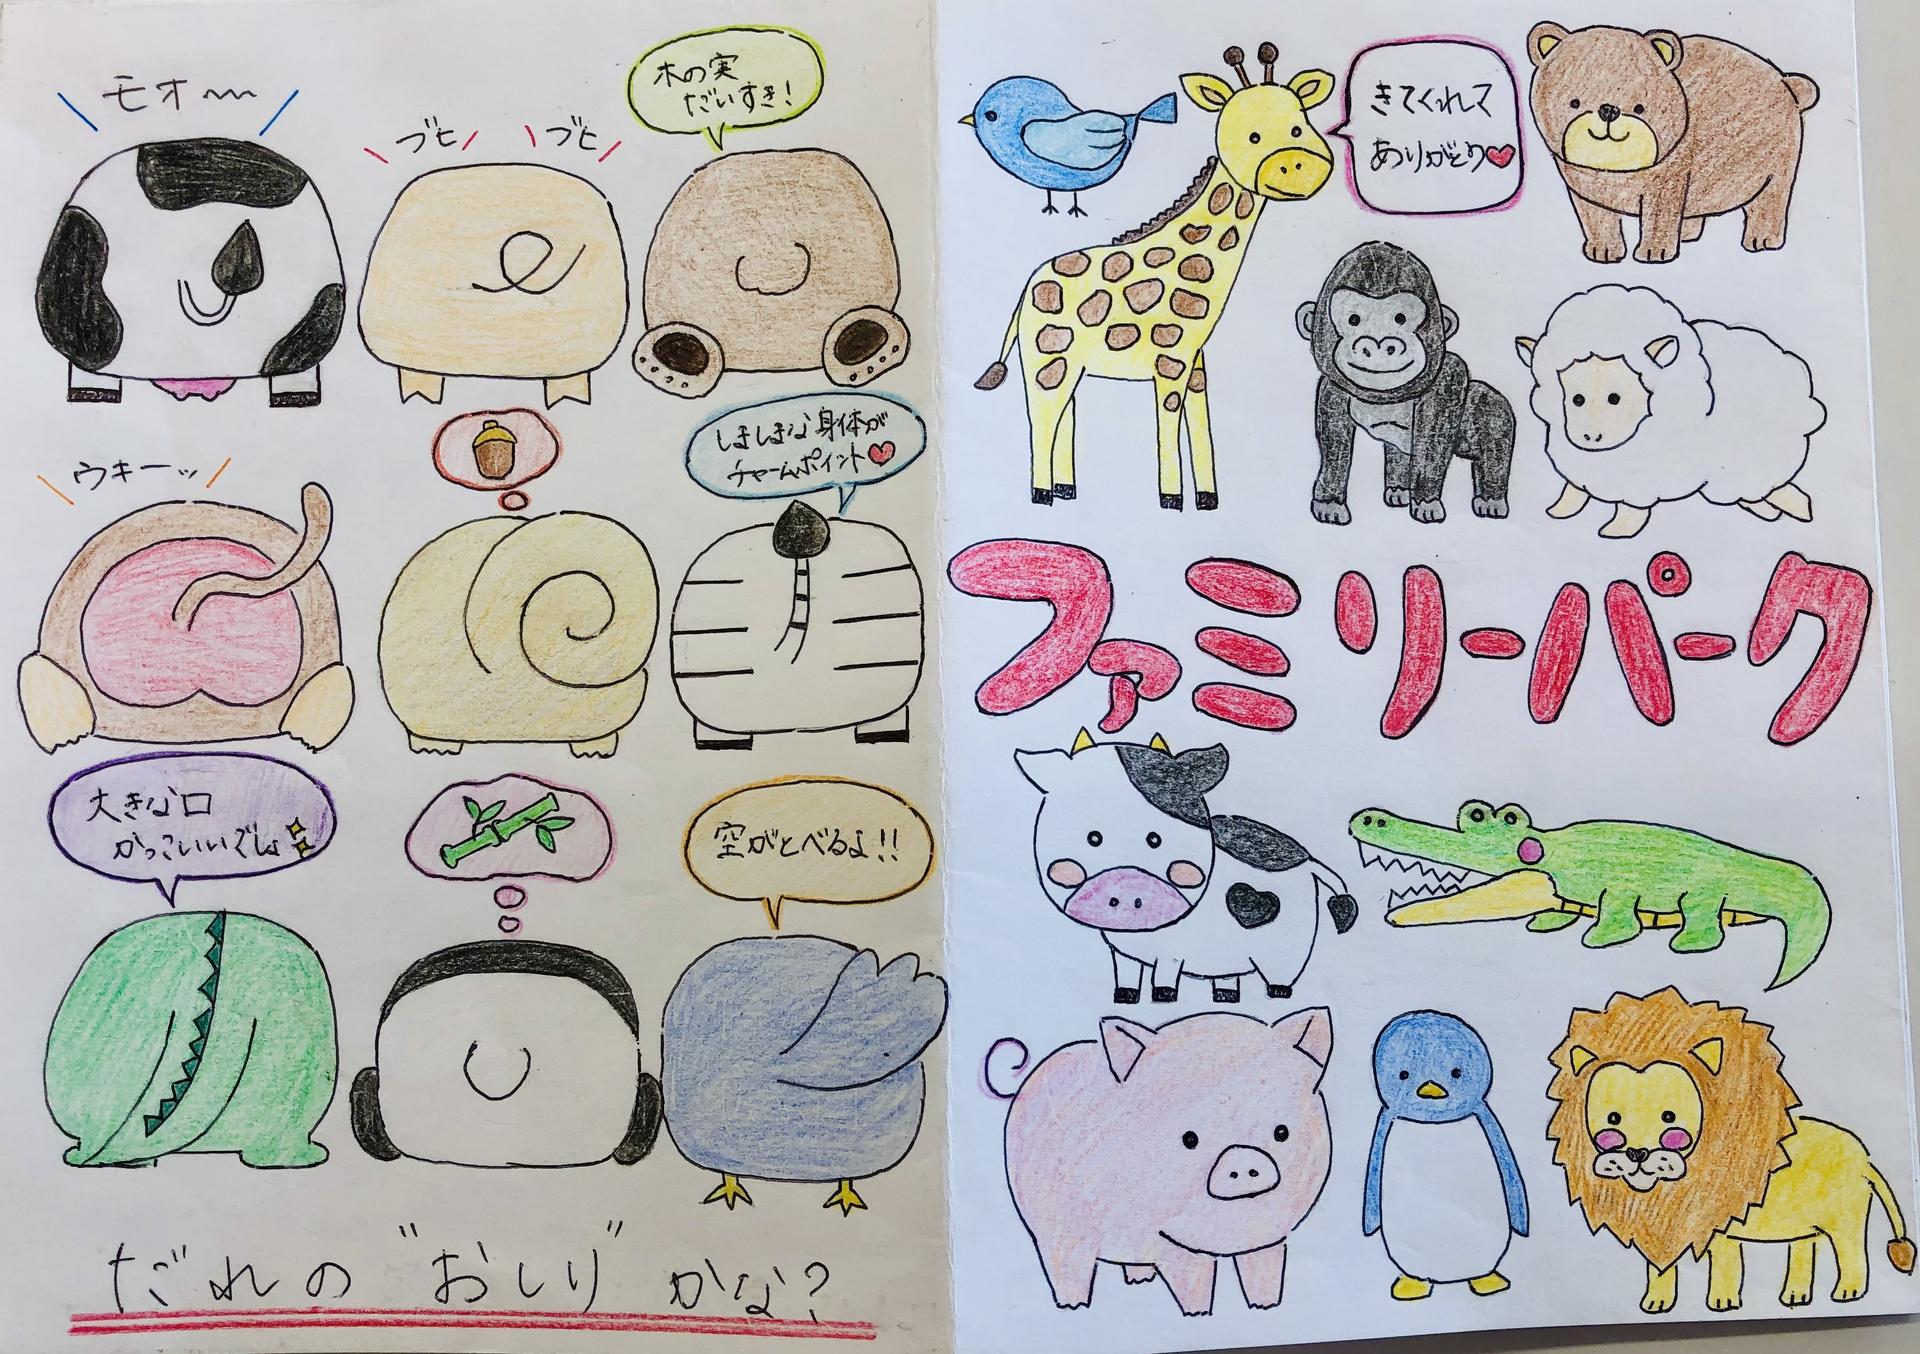 モオ〜
ブヒ ブヒ
木の実
だいすき!
ウキーッ
しましまな身体が
チャームポイント♥
大きな口
かっこいいでしょ
空がとべるよ!!
だれの"おしり"かな?
きてくれて
ありがとう♥
ファミリーパーク